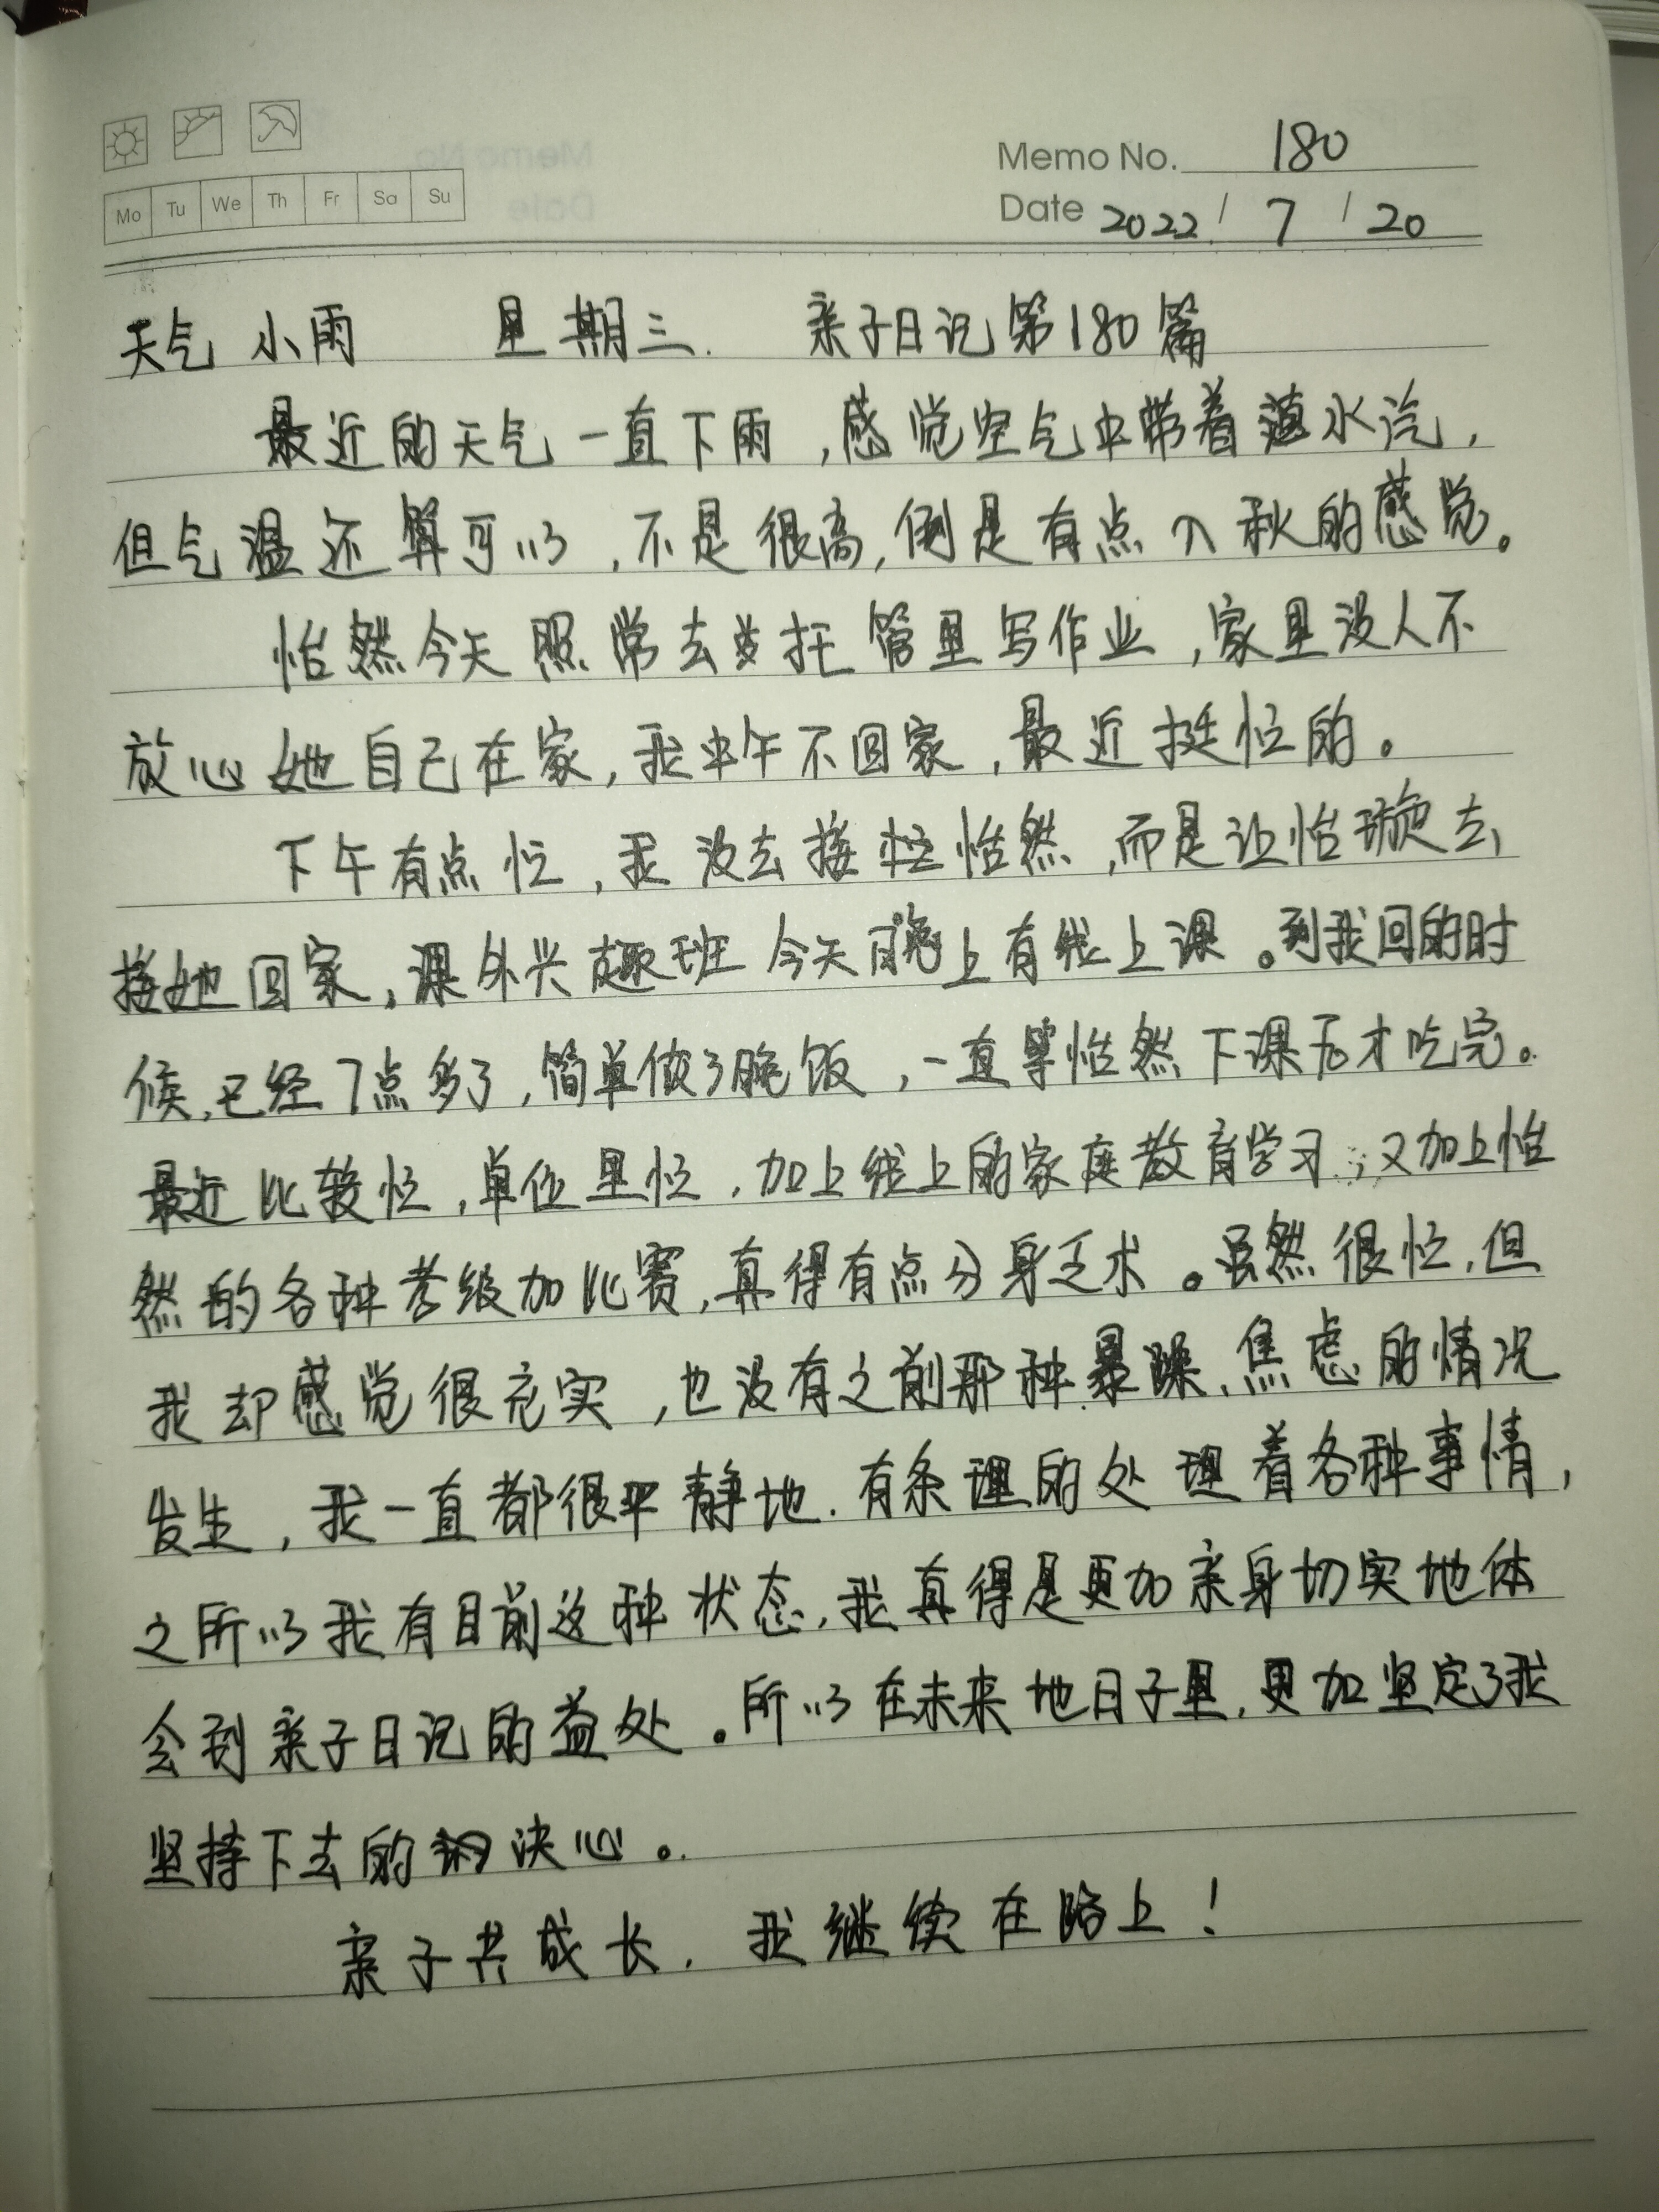 Memo No. 180
Mo Tu We Th Fr Sa Su
Date 2022 / 7 / 20
天气 小雨 星期三. 亲子日记第180篇
最近的天气一直下雨,感觉空气中带着水汽,
但气温还算可以,不是很高,倒是有点入秋的感觉。
怡然今天照常去托管里写作业,家里没人不
放心她自己在家,我中午不回家,最近挺忙的。
下午有点忙,我没去接怡然,而是让怡璇去
接她回家,课外兴趣班今天晚上有线上课。到我回的时
候,已经7点多了,简单做了晚饭,一直等怡然下课后才吃完。
最近比较忙,单位里忙,加上线上的家庭教育学习,又加上怡
然的各种考级加比赛,真得有点分身乏术。虽然很忙,但
我却感觉很充实,也没有之前那种暴躁、焦虑的情况
发生,我一直都很平静地、有条理的处理着各种事情,
之所以我有目前这种状态,我真得是更加亲身切实地体
会到亲子日记的益处。所以在未来地日子里,更加坚定了我
坚持下去的决心。
亲子共成长,我继续在路上!